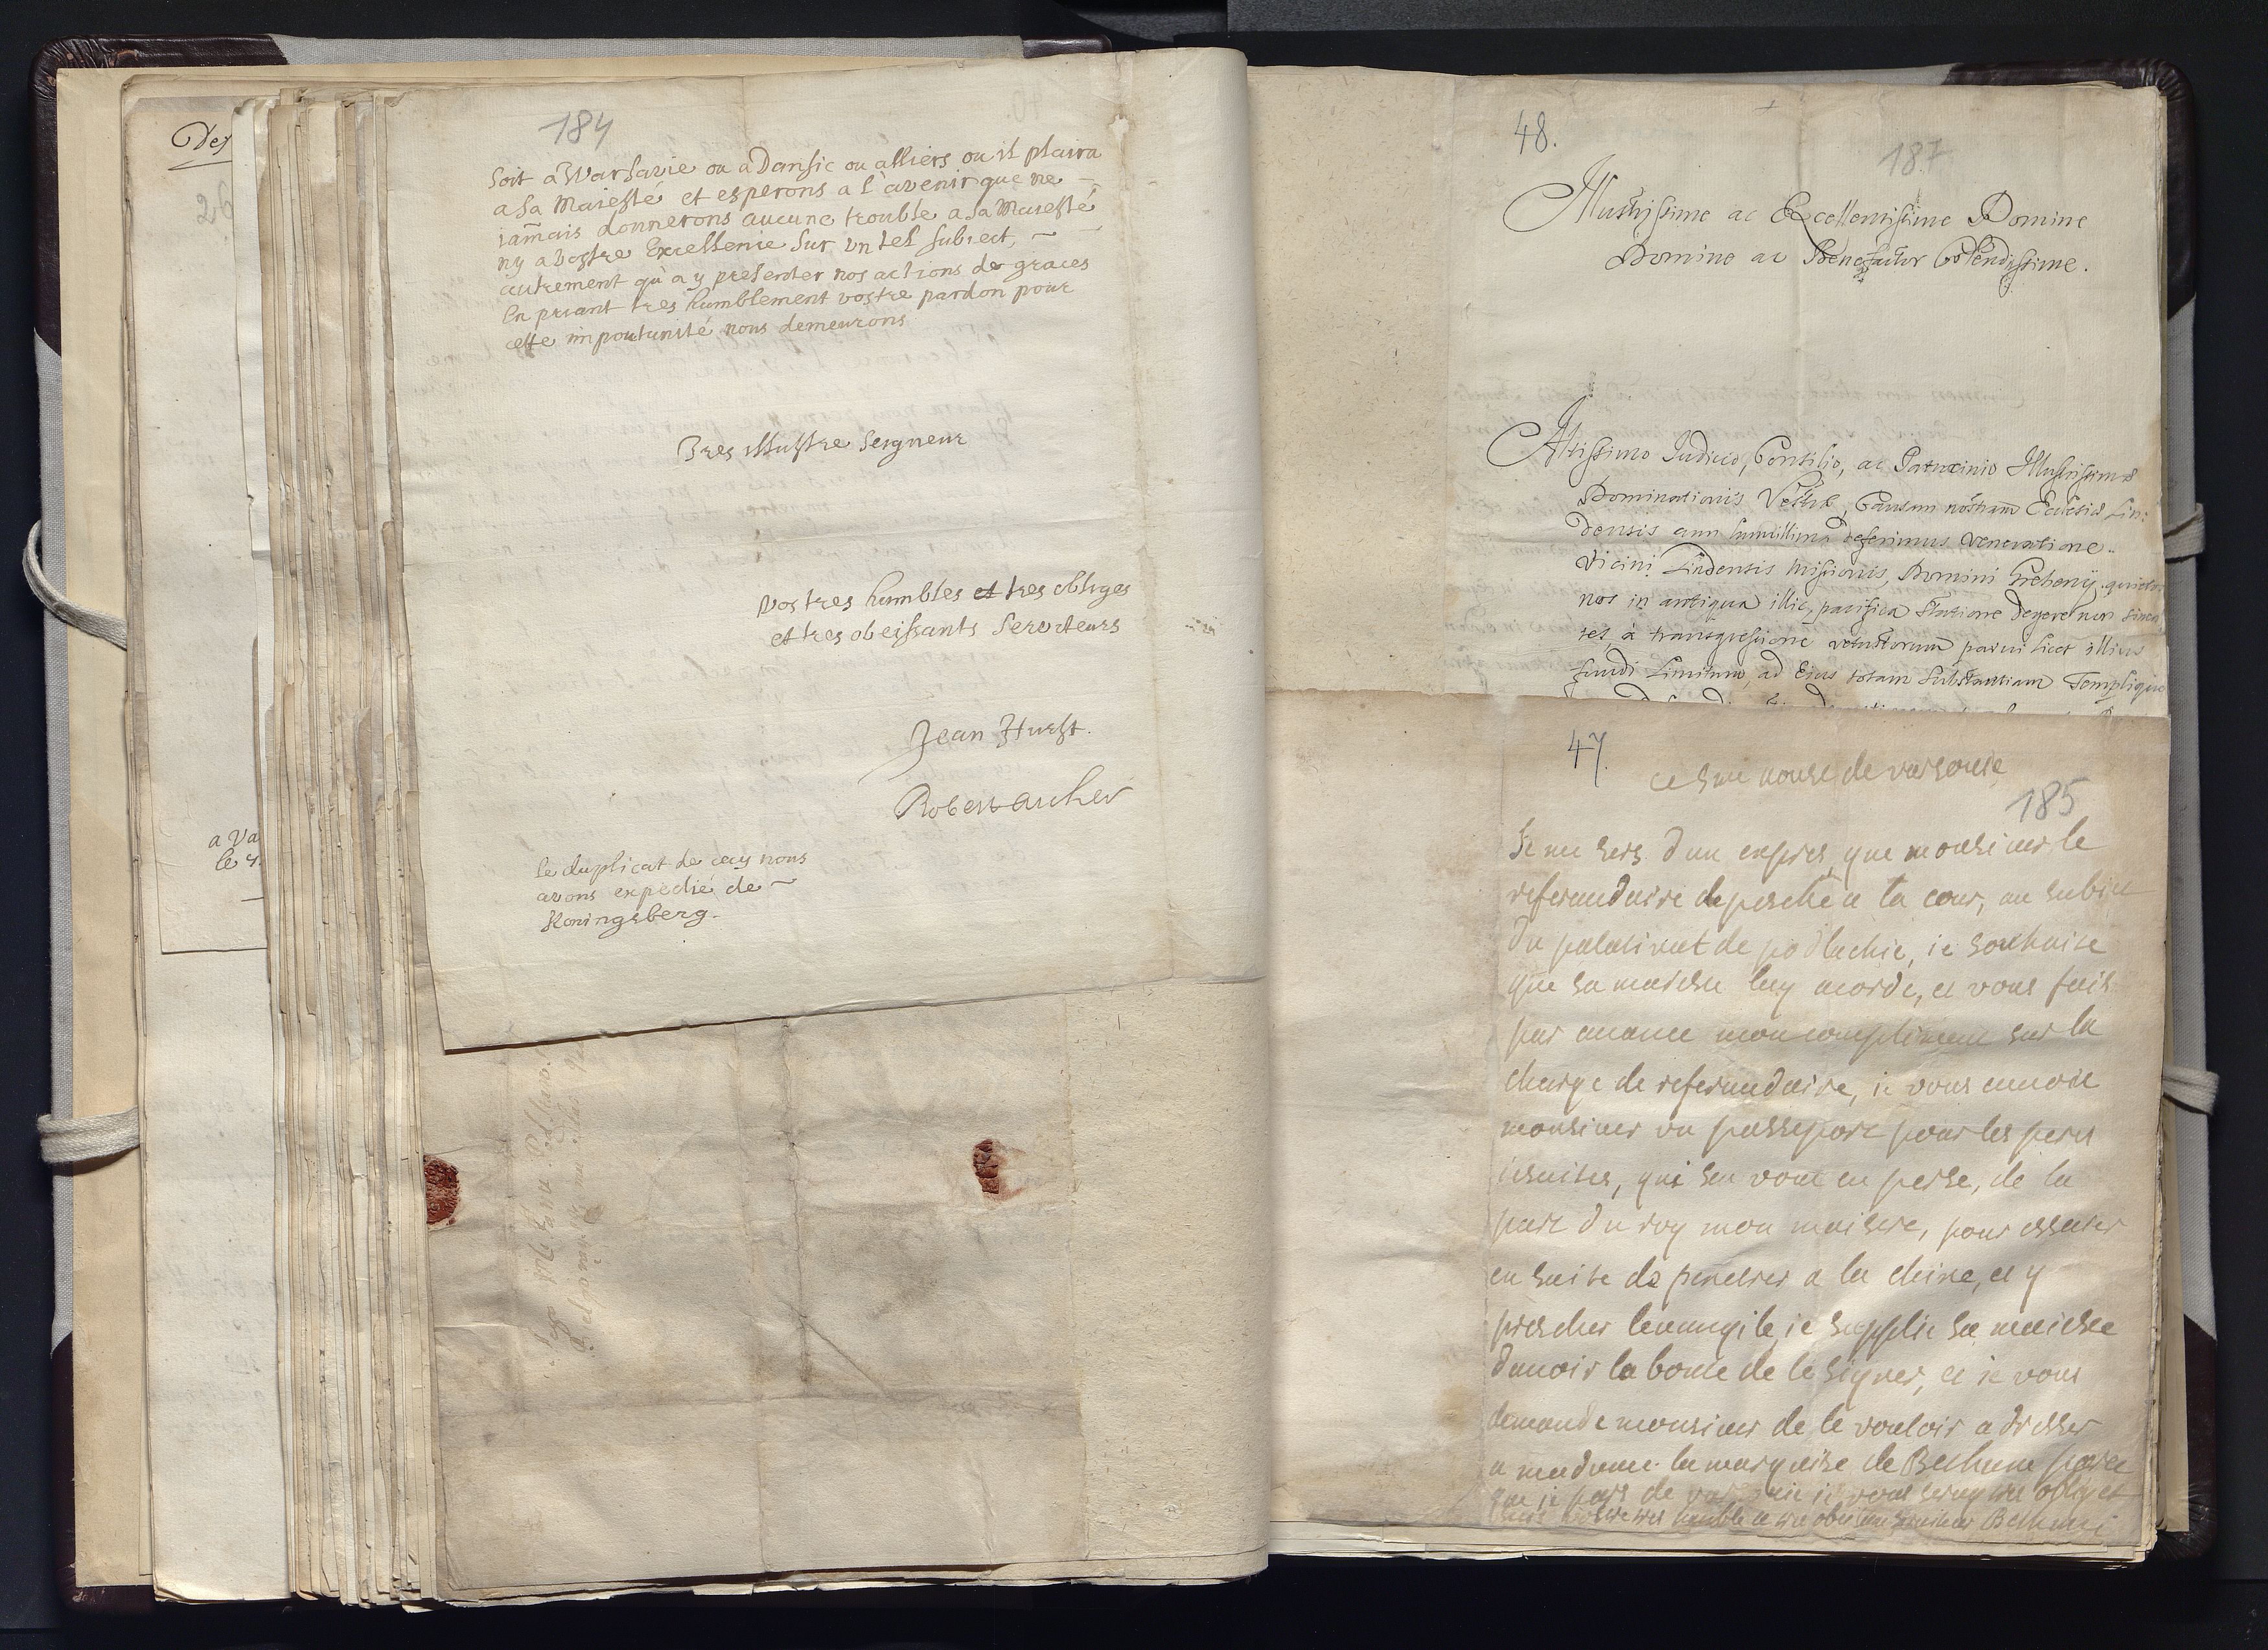 Des
26
a Va
le 4.
184
soit a Warsavie ou a Dansic ou alliers ou il plaira
a sa Maiesté et esperons a l'avenir que ne
iam̄ais donnerons aucune trouble a sa Maiesté
ny a Vostre Excellenie sur un tel subiect,
autrement qu'a y presenter nos actions de graces
En priant tres humblement vostre pardon pour
cette importunité nous demeurons
Tres illustre Seigneur
Vos tres humbles et tres obliges
et tres obeissants Serviteurs
Jean Hurst.
Robert Archer
le duplicat de cecy nous
avons expedié de
Koningsberg.
48.
187
Illustrissime ac Excellentissime Domine
Domine ac Benefactor Colendissime.
Altissimo Iudicio, Consilio, ac Patrocinio Illustrissimæ
Dominationis Vestræ, Causam nostram Ecclesiæ Lin:
densis cum humillima deferimus veneratione.
Vicini Lindensis Missionis, Domini Grebenÿ, quietos
nos in antiqua illic, pacifica statione degere non sinen
tes, à transgressione vetustorum parvi licet illius
fundi Limitum, ad Eius totam substantiam Templique
47.
ce 5me de varsouie
185
Je me sers d'un expres que monsieur le
referendaire depesche a la cour, au subiet
du palatinat de podlachie, ie souhaite
que sa maieste luy acorde, et vous fais
par auance mon compliment sur la
charge de referendaire, ie vous enuoie
monsieur un passeport pour les peres
iesuites, qui sen vont en perse, de la
part du roy mon maistre, pour essaier
en suite de penetrer a la chine, et y
prescher leuangile ie supplie sa maieste
dauoir la bonte de le signer, et ie vous
demande monsieur de le vouloir adresser
a madame la marquise de Bethune parce
que ie pars de ie vous seray tres obliget
vostre tres humble et tres obeissant seruiteur Bethune